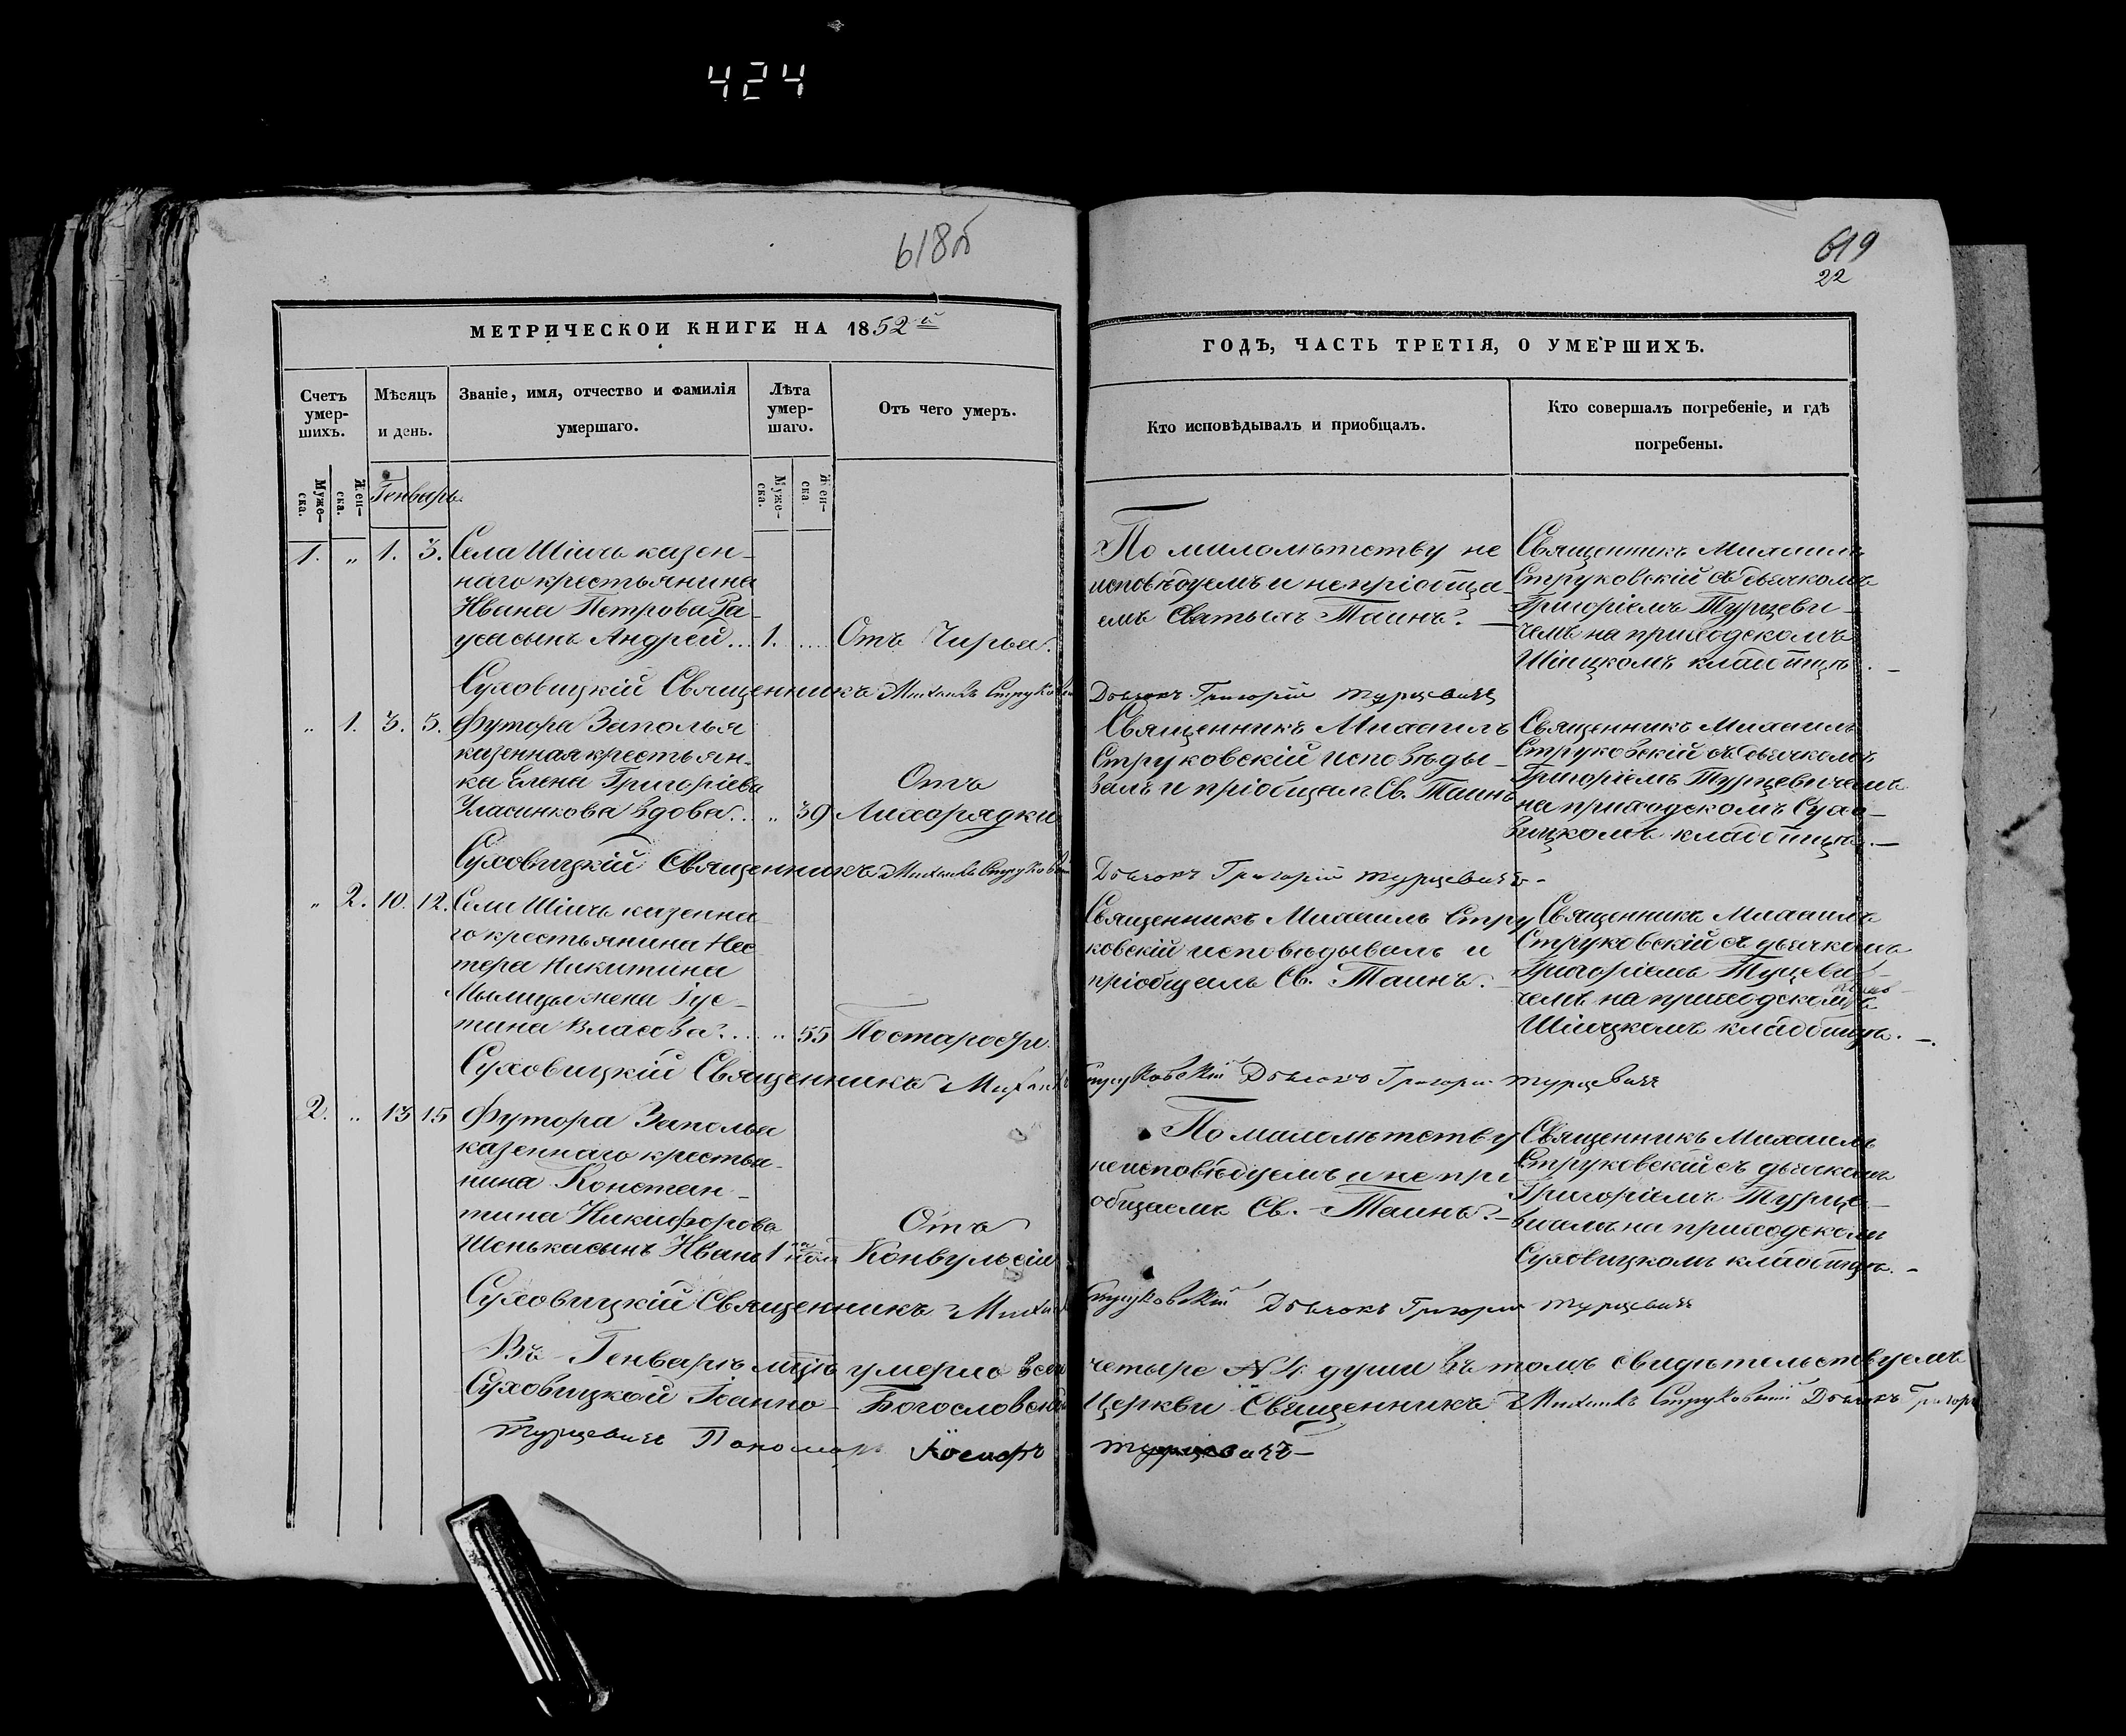 424
618б
619
22
МЕТРИЧЕСКОЙ КНИГИ НА 1852й
ГОДЪ, ЧАСТЬ ТРЕТІЯ, О УМЕРШИХЪ.
Счетъ умер-шихъ.
Мѣсяцъ и день.
Званіе, имя, отчество и фамилія умершаго.
Лѣта умер-шаго.
Отъ чего умеръ.
Кто исповѣдывалъ и пріобщалъ.
Кто совершалъ погребеніе, и гдѣ погребены.
Муже-ска.
Жен-ска.
Генварь.
Муже-ска.
Жен-ска
1. „ 1. 3. Села Шіичь казен-
наго крестьянина
Ивана Петрова
сынъ Андрей... 1. .... Отъ Чирья.
По малолѣтству не
исповѣдуемъ и непріобща-
емъ Святыхъ Таинъ.
Священникъ Михаилъ
Струковскій съ дьячкомъ
Григоріемъ Турцеви-
чемъ на приходскомъ
Шіицкомъ кладбищѣ.
Суховицкій Священникъ Михаилъ Струковскій
Дьячокъ Григорій Турцевичъ
„ 1. 3. 5. Футора Заполья
казенная крестьян-
ка Елена Григоріева
вдова.. „ 39 Отъ
Лихорядки
Священникъ Михаилъ
Струковскій исповѣды-
валъ и пріобщалъ Св. Таинъ
Священникъ Михаилъ
Струковскій съ дьячкомъ
Григоріемъ Турцевичемъ
на приходскомъ Сухо-
вицкомъ кладбищѣ.
Суховицкій Священникъ Михаилъ Струковскій
Дьячокъ Григорій Турцевичъ-
„ 2. 10. 12. Села Шіичь казенна-
го крестьянина Нес-
тера Никитина
жена Іус-
тина Власова.... „ 55 По старости.
Священникъ Михаилъ Стру
ковскій исповѣдывалъ и
пріобщалъ Св. Таинъ.
Священникъ Михаилъ
Струковскій съ дьячкомъ
Григоріемъ Туцеви-
чемъ на приходскомъ
Шіицкомъ кладбищѣ.
Суховицкій Священникъ Михаилъ
Струковскій Дьячокъ Григорій Турцевичъ
2. „ 13 15 Футора Заполья
казеннаго крестья-
нина Констан-
тина Никифорова
Шенька сынъ Иванъ 1
Отъ
Конвульсіи
По малолѣтству
неисповѣдуемъ и не прі
общаемъ Св. Таинъ.-
Священникъ Михаилъ
Струковскій съ дьячкомъ
Григоріемъ Турце-
вичемъ на приходскомъ
Суховицкомъ кладбищѣ.-
Суховицкій Священникъ Михаилъ
Струковскій Дьячокъ Григорій Турцевичъ
Въ Генварѣ мцѣ умерло всего четыре №4. души въ томъ свидѣтельствуемъ
Суховицкой Іоанно-Богословской Церкви Священникъ Михаилъ Струковскій Дьячокъ Григорій
Турцевичъ Пономарь Іосифъ Турцевичъ-